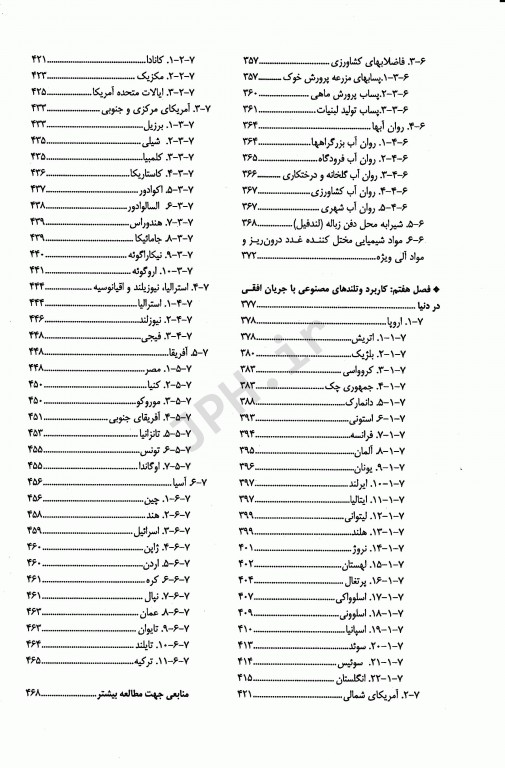 ۶-۳. فاضلابهای کشاورزی ........ ۳۵۷
۶-۳-۱. پسابهای مزرعه پرورش خوک ........ ۳۵۷
۶-۳-۲. پساب پرورش ماهی ........ ۳۶۰
۶-۳-۳. پساب تولید لبنیات ........ ۳۶۱
۶-۴. روان آبها ........ ۳۶۴
۶-۴-۱. روان آب بزرگراهها ........ ۳۶۴
۶-۴-۲. روان آب فرودگاه ........ ۳۶۵
۶-۴-۳. روان آب گلخانه و درختکاری ........ ۳۶۶
۶-۴-۴. روان آب کشاورزی ........ ۳۶۷
۶-۴-۵. روان آب شهری ........ ۳۶۷
۶-۵. شیرابه محل دفن زباله (لندفیل) ........ ۳۶۸
۶-۶. مواد شیمیایی مختل کننده غدد درون‌ریز و
مواد آلی ویژه ........ ۳۷۲
◆ فصل هفتم: کاربرد وتلندهای مصنوعی با جریان افقی
در دنیا ........ ۳۷۷
۷-۱. اروپا ........ ۳۷۸
۷-۱-۱. اتریش ........ ۳۷۸
۷-۱-۲. بلژیک ........ ۳۸۰
۷-۱-۳. کرواسی ........ ۳۸۳
۷-۱-۴. جمهوری چک ........ ۳۸۳
۷-۱-۵. دانمارک ........ ۳۸۸
۷-۱-۶. استونی ........ ۳۹۳
۷-۱-۷. فرانسه ........ ۳۹۴
۷-۱-۸. آلمان ........ ۳۹۵
۷-۱-۹. یونان ........ ۳۹۶
۷-۱-۱۰. ایرلند ........ ۳۹۷
۷-۱-۱۱. ایتالیا ........ ۳۹۷
۷-۱-۱۲. لیتوانی ........ ۳۹۹
۷-۱-۱۳. هلند ........ ۳۹۹
۷-۱-۱۴. نروژ ........ ۴۰۱
۷-۱-۱۵. لهستان ........ ۴۰۲
۷-۱-۱۶. پرتغال ........ ۴۰۴
۷-۱-۱۷. اسلوواکی ........ ۴۰۷
۷-۱-۱۸. اسلوونی ........ ۴۰۹
۷-۱-۱۹. اسپانیا ........ ۴۱۰
۷-۱-۲۰. سوئد ........ ۴۱۳
۷-۱-۲۱. سوئیس ........ ۴۱۴
۷-۱-۲۲. انگلستان ........ ۴۱۵
۷-۲. آمریکای شمالی ........ ۴۲۱
۷-۲-۱. کانادا ........ ۴۲۱
۷-۲-۲. مکزیک ........ ۴۲۳
۷-۲-۳. ایالات متحده آمریکا ........ ۴۲۵
۷-۳. آمریکای مرکزی و جنوبی ........ ۴۳۳
۷-۳-۱. برزیل ........ ۴۳۳
۷-۳-۲. شیلی ........ ۴۳۵
۷-۳-۳. کلمبیا ........ ۴۳۵
۷-۳-۴. کاستاریکا ........ ۴۳۶
۷-۳-۵. اکوادور ........ ۴۳۷
۷-۳-۶. السالوادور ........ ۴۳۸
۷-۳-۷. هندوراس ........ ۴۳۹
۷-۳-۸. جامائیکا ........ ۴۳۹
۷-۳-۹. نیکاراگوئه ........ ۴۴۰
۷-۳-۱۰. اروگوئه ........ ۴۴۱
۷-۴. استرالیا، نیوزیلند و اقیانوسیه ........ ۴۴۴
۷-۴-۱. استرالیا ........ ۴۴۴
۷-۴-۲. نیوزلند ........ ۴۴۶
۷-۴-۳. فیجی ........ ۴۴۸
۷-۵. آفریقا ........ ۴۴۸
۷-۵-۱. مصر ........ ۴۴۸
۷-۵-۲. کنیا ........ ۴۵۰
۷-۵-۳. موروکو ........ ۴۵۰
۷-۵-۴. آفریقای جنوبی ........ ۴۵۱
۷-۵-۵. تانزانیا ........ ۴۵۳
۷-۵-۶. تونس ........ ۴۵۵
۷-۵-۷. اوگاندا ........ ۴۵۵
۷-۶. آسیا ........ ۴۵۶
۷-۶-۱. چین ........ ۴۵۶
۷-۶-۲. هند ........ ۴۵۸
۷-۶-۳. اسرائیل ........ ۴۵۹
۷-۶-۴. ژاپن ........ ۴۶۰
۷-۶-۵. اردن ........ ۴۶۰
۷-۶-۶. کره ........ ۴۶۱
۷-۶-۷. نپال ........ ۴۶۱
۷-۶-۸. عمان ........ ۴۶۳
۷-۶-۹. تایوان ........ ۴۶۳
۷-۶-۱۰. تایلند ........ ۴۶۴
۷-۶-۱۱. ترکیه ........ ۴۶۵
منابعی جهت مطالعه بیشتر ........ ۴۶۸
JPH.ir